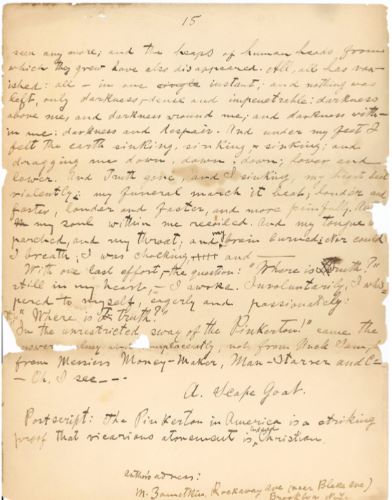 15
seen any more; and the heaps of human heads, from
which they grew have also disappeared. All, all has van-
ished: all - in one single instant; and nothing was
left, only darkness - dense and impenetrable: darkness
above me, and darkness around me; and darkness with-
in me: darkness and despair. And under my feet I
felt the earth sinking, sinking & sinking; and
dragging me down, down, down; lower and
lower. And Truth sine, and I sinking, my heart beat
violently; my funeral march it beat, louder and
faster, louder and faster, and more painfully. And
my soul within me receded. And my tongue
parched, and my throat, and my brain burned; nor could
I breath; I was chocking and —
With one last effort, the question: "Where is Truth?"
still in my heart, - I awoke. Involuntarily, I whis-
pered to myself, eagerly and passionately:
"Where is truth?"
"In the unrestricted sway of the Pinkerton!" came the
answer placently, not from
from Messiers Money-Maker, Man-Starver and C-
— Oh, I see ---
A. Scape Goat.
Postscript: The Pinkerton in America is a striking
proof that vicarious atonement is Christian.
author's adress:
M. Rockaway ave (near Blake ave)